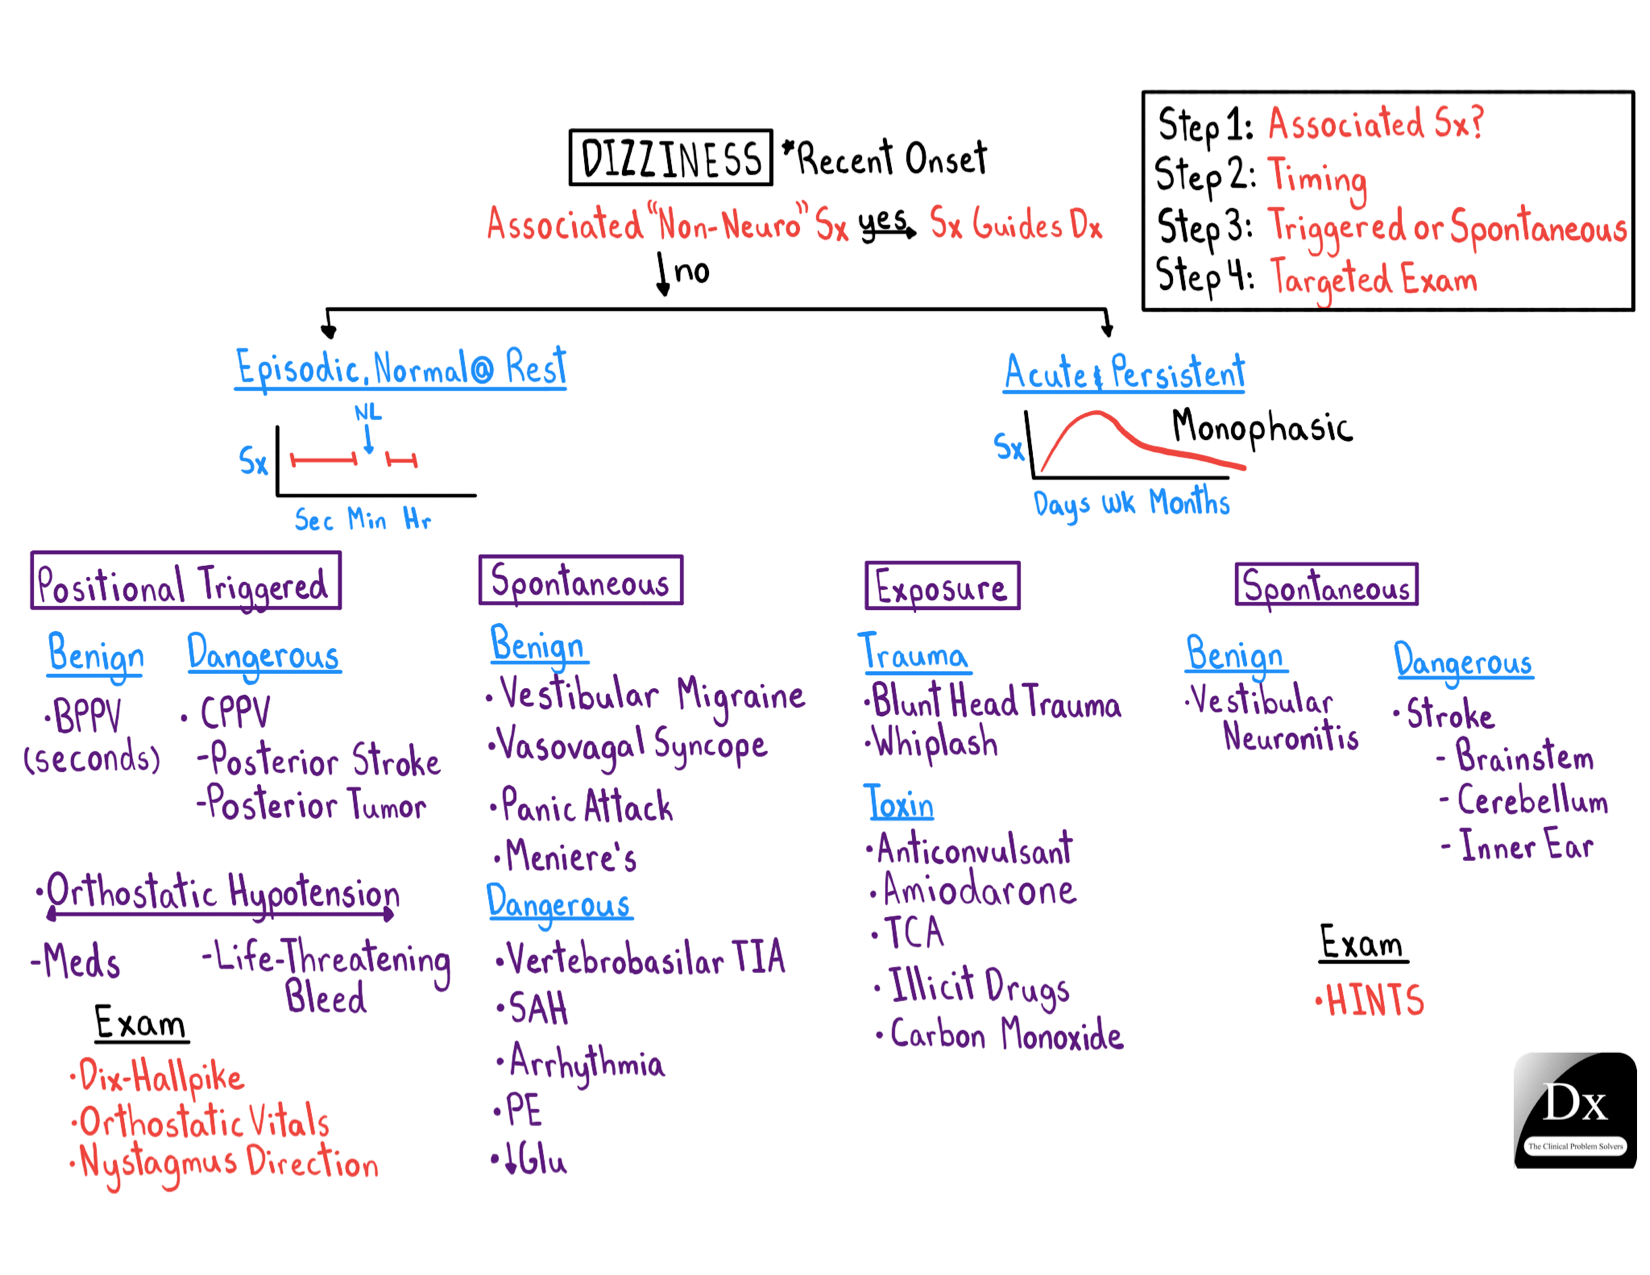 DIZZINESS *Recent Onset
Associated "Non-Neuro" Sx yes Sx Guides Dx
no
Step 1: Associated Sx?
Step 2: Timing
Step 3: Triggered or Spontaneous
Step 4: Targeted Exam
Episodic, Normal @ Rest
NL
Sx
Sec Min Hr
Acute & Persistent
Monophasic
Sx
Days Wk Months
Positional Triggered
Benign
•BPPV
(seconds)
Dangerous
• CPPV
-Posterior Stroke
-Posterior Tumor
•Orthostatic Hypotension
-Meds
-Life-Threatening
Bleed
Exam
•Dix-Hallpike
•Orthostatic Vitals
•Nystagmus Direction
Spontaneous
Benign
•Vestibular Migraine
•Vasovagal Syncope
•Panic Attack
•Meniere's
Dangerous
•Vertebrobasilar TIA
•SAH
•Arrhythmia
•PE
•↓Glu
Exposure
Trauma
•Blunt Head Trauma
•Whiplash
Toxin
•Anticonvulsant
•Amiodarone
•TCA
•Illicit Drugs
•Carbon Monoxide
Spontaneous
Benign
•Vestibular
Neuronitis
Dangerous
•Stroke
- Brainstem
- Cerebellum
- Inner Ear
Exam
•HINTS
Dx
The Clinical Problem Solvers